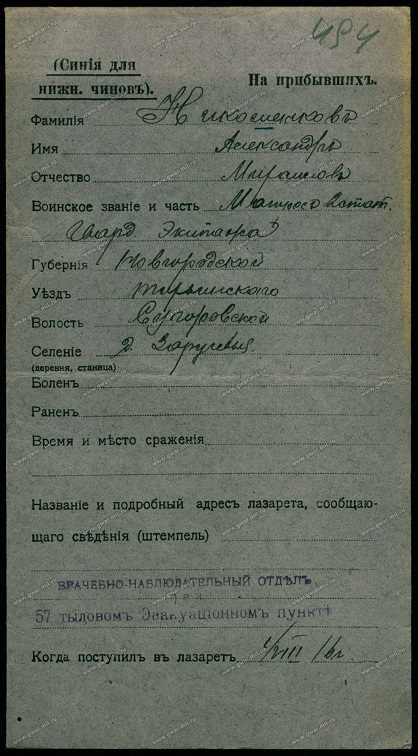 494
(Синія для
нижн. чиновъ).
На прибывшихъ.
Фамилія Никошенковъ
Имя Александръ
Отчество
Воинское званіе и часть Матросъ 2 стат.
Гвард. Экипажа
Губернія Новгородской
Уѣздъ
Волость
Селеніе д. Заручевье
(деревня, станица)
Боленъ
Раненъ
Время и мѣсто сраженія
Названіе и подробный адресъ лазарета, сообщаю-
щаго свѣдѣнія (штемпель)
ВРАЧЕБНО-НАБЛЮДАТЕЛЬНЫЙ ОТДѢЛЪ
при
57 тыловомъ Эвакуаціонномъ пунктѣ
Когда поступилъ въ лазаретъ 4/VIII 16 г.